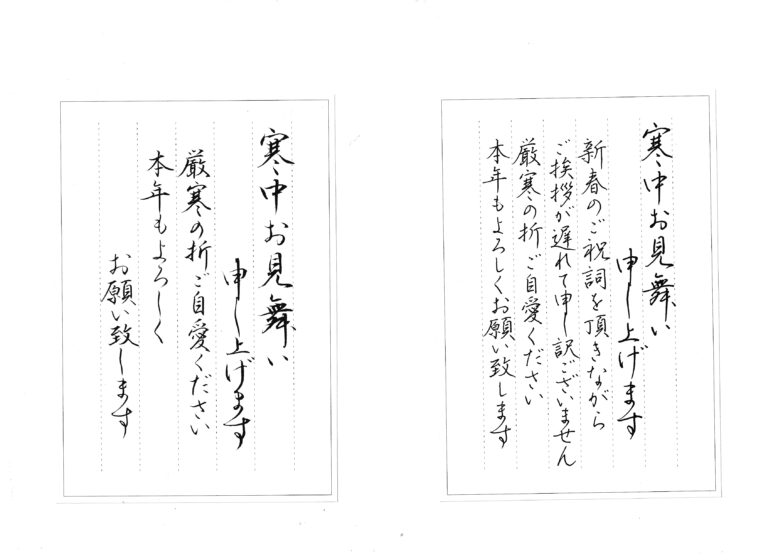 寒中お見舞い
申し上げます
新春のご祝詞を頂きながら
ご挨拶が遅れて申し訳ございません
厳寒の折ご自愛ください
本年もよろしくお願い致します
寒中お見舞い
申し上げます
厳寒の折ご自愛ください
本年もよろしく
お願い致します